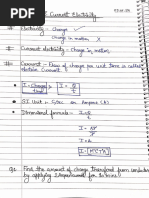 Current Electricity
# Electricity → Charge ✓
Charge in motion X
# Current electricity → Charge in motion.
# Current → Flow of charge per unit time is called
electric Current.
I = Charge/time I = Q/t
* SI Unit = C/sec or Ampere (A)
* Dimensional formula = I = Q/t
I =
I = A
I = [M°L°T°A¹]
Q1 Find the amount of charge transferred from conductor
by applying